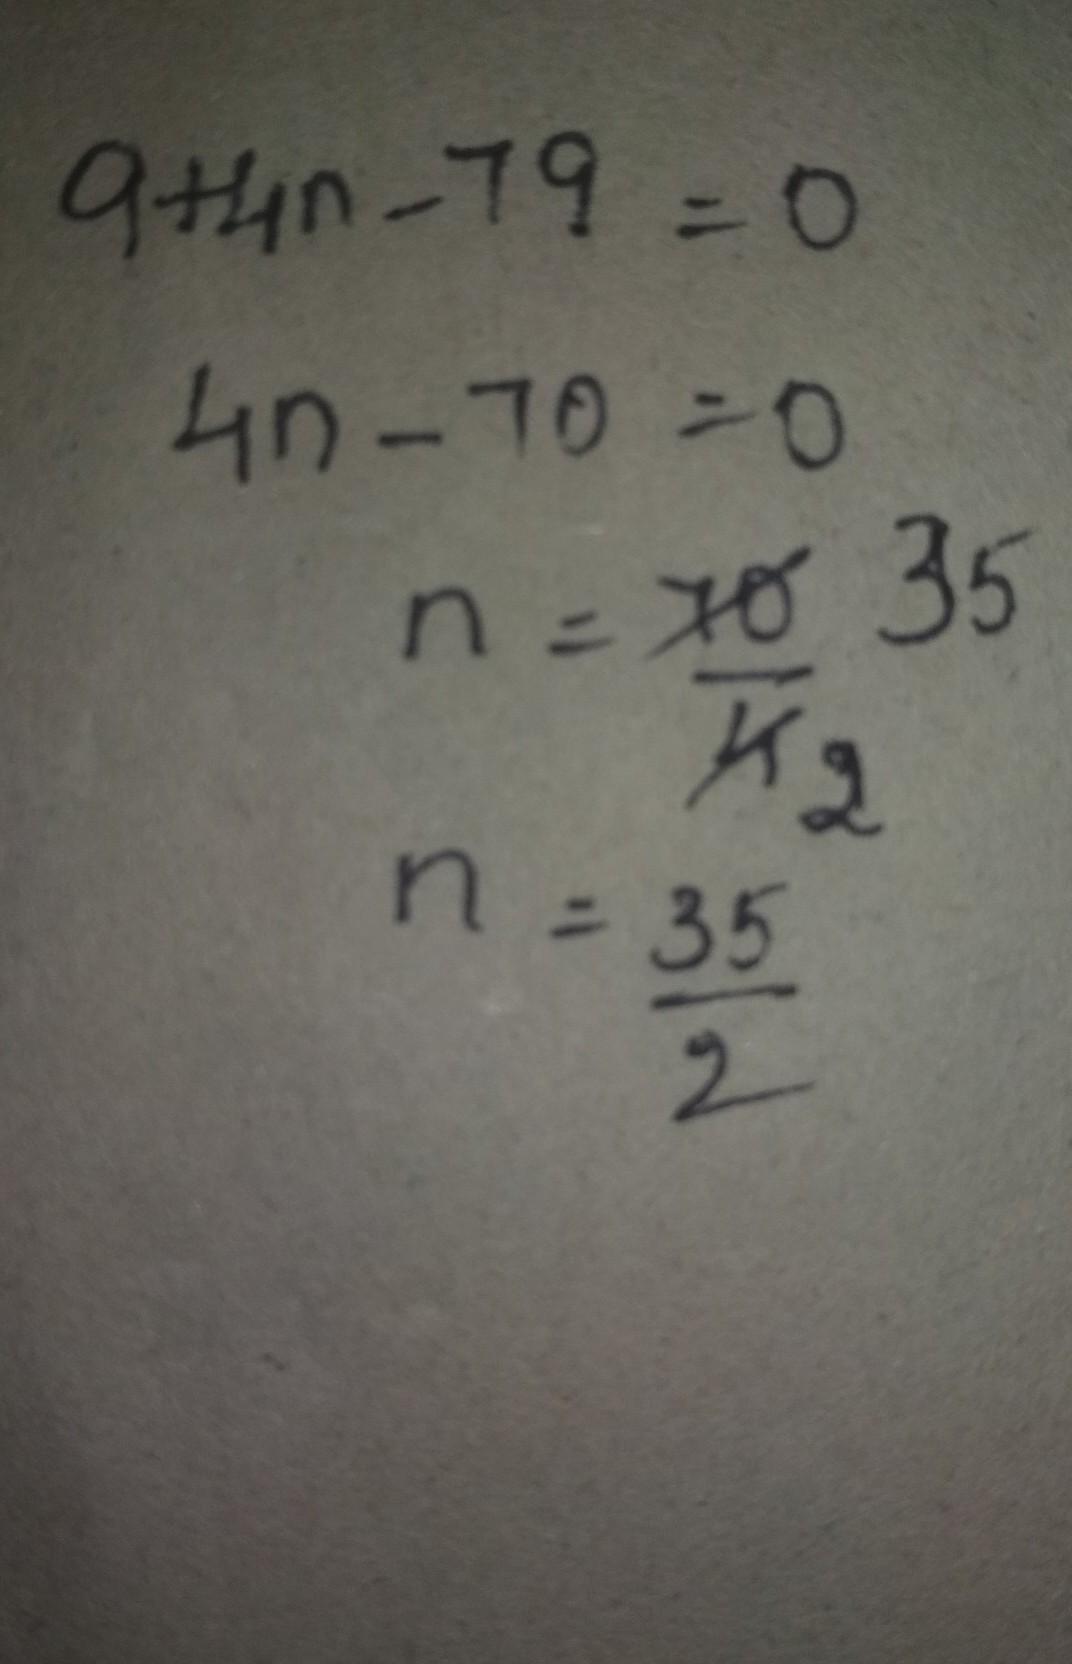 9+4n-79=0
4n-70=0
n=70/4 35 2
n=35/2